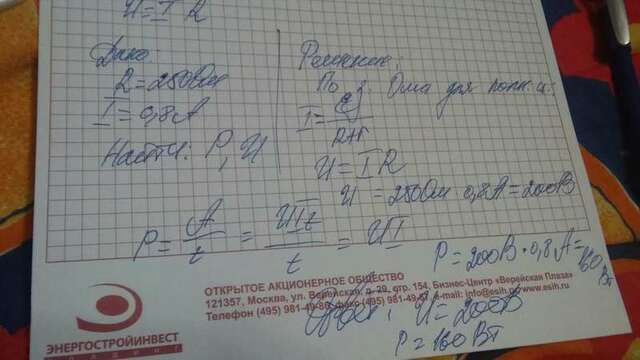 U = I R
Дано:
R = 250 Ом
I = 0,8 А
Найти: P, U
Решение:
По з. Ома для полн. ц.
I = ε / R+r
U = I R
U = 250 Ом 0,8 А = 200 В
P = A / t = UIt / t = UI
P = 200 В · 0,8 А = 160 Вт
Ответ: U = 200 В
P = 160 Вт
ОТКРЫТОЕ АКЦИОНЕРНОЕ ОБЩЕСТВО
121357, Москва, ул. Верейская, д. 29, стр. 154, Бизнес-Центр «Верейская Плаза»
Телефон (495) 981-49- факс (495) 981-49- e-mail: info@esih. www.esih.ru
ЭНЕРГОСТРОЙИНВЕСТ